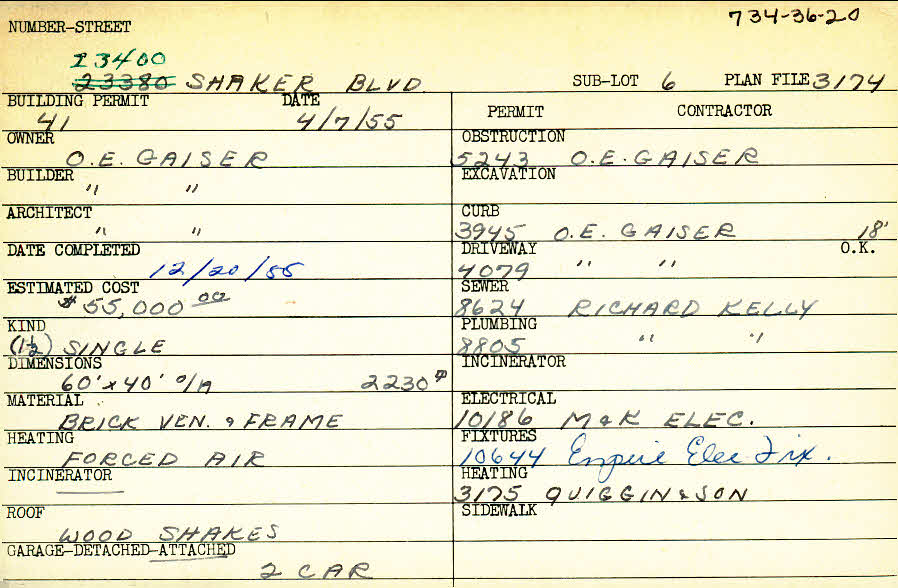 734-36-20
NUMBER-STREET
23400
23380 SHAKER BLVD. SUB-LOT 6 PLAN FILE 3174
BUILDING PERMIT DATE
41 4/7/55
OWNER
O.E. GAISER
BUILDER
" "
ARCHITECT
" "
DATE COMPLETED
12/20/55
ESTIMATED COST
$55,000 00
KIND
(1½) SINGLE
DIMENSIONS
60'x40' O/A 2230
MATERIAL
BRICK VEN. & FRAME
HEATING
FORCED AIR
INCINERATOR
ROOF
WOOD SHAKES
GARAGE-DETACHED-ATTACHED
2 CAR
PERMIT CONTRACTOR
OBSTRUCTION
5243 O.E. GAISER
EXCAVATION
CURB
3945 O.E. GAISER 18'
DRIVEWAY O.K.
4079 " "
SEWER
8624 RICHARD KELLY
PLUMBING
8805 " "
INCINERATOR
ELECTRICAL
10186 M&K ELEC.
FIXTURES
10644 Empire Elec Fix.
HEATING
3175 QUIGGIN & SON
SIDEWALK